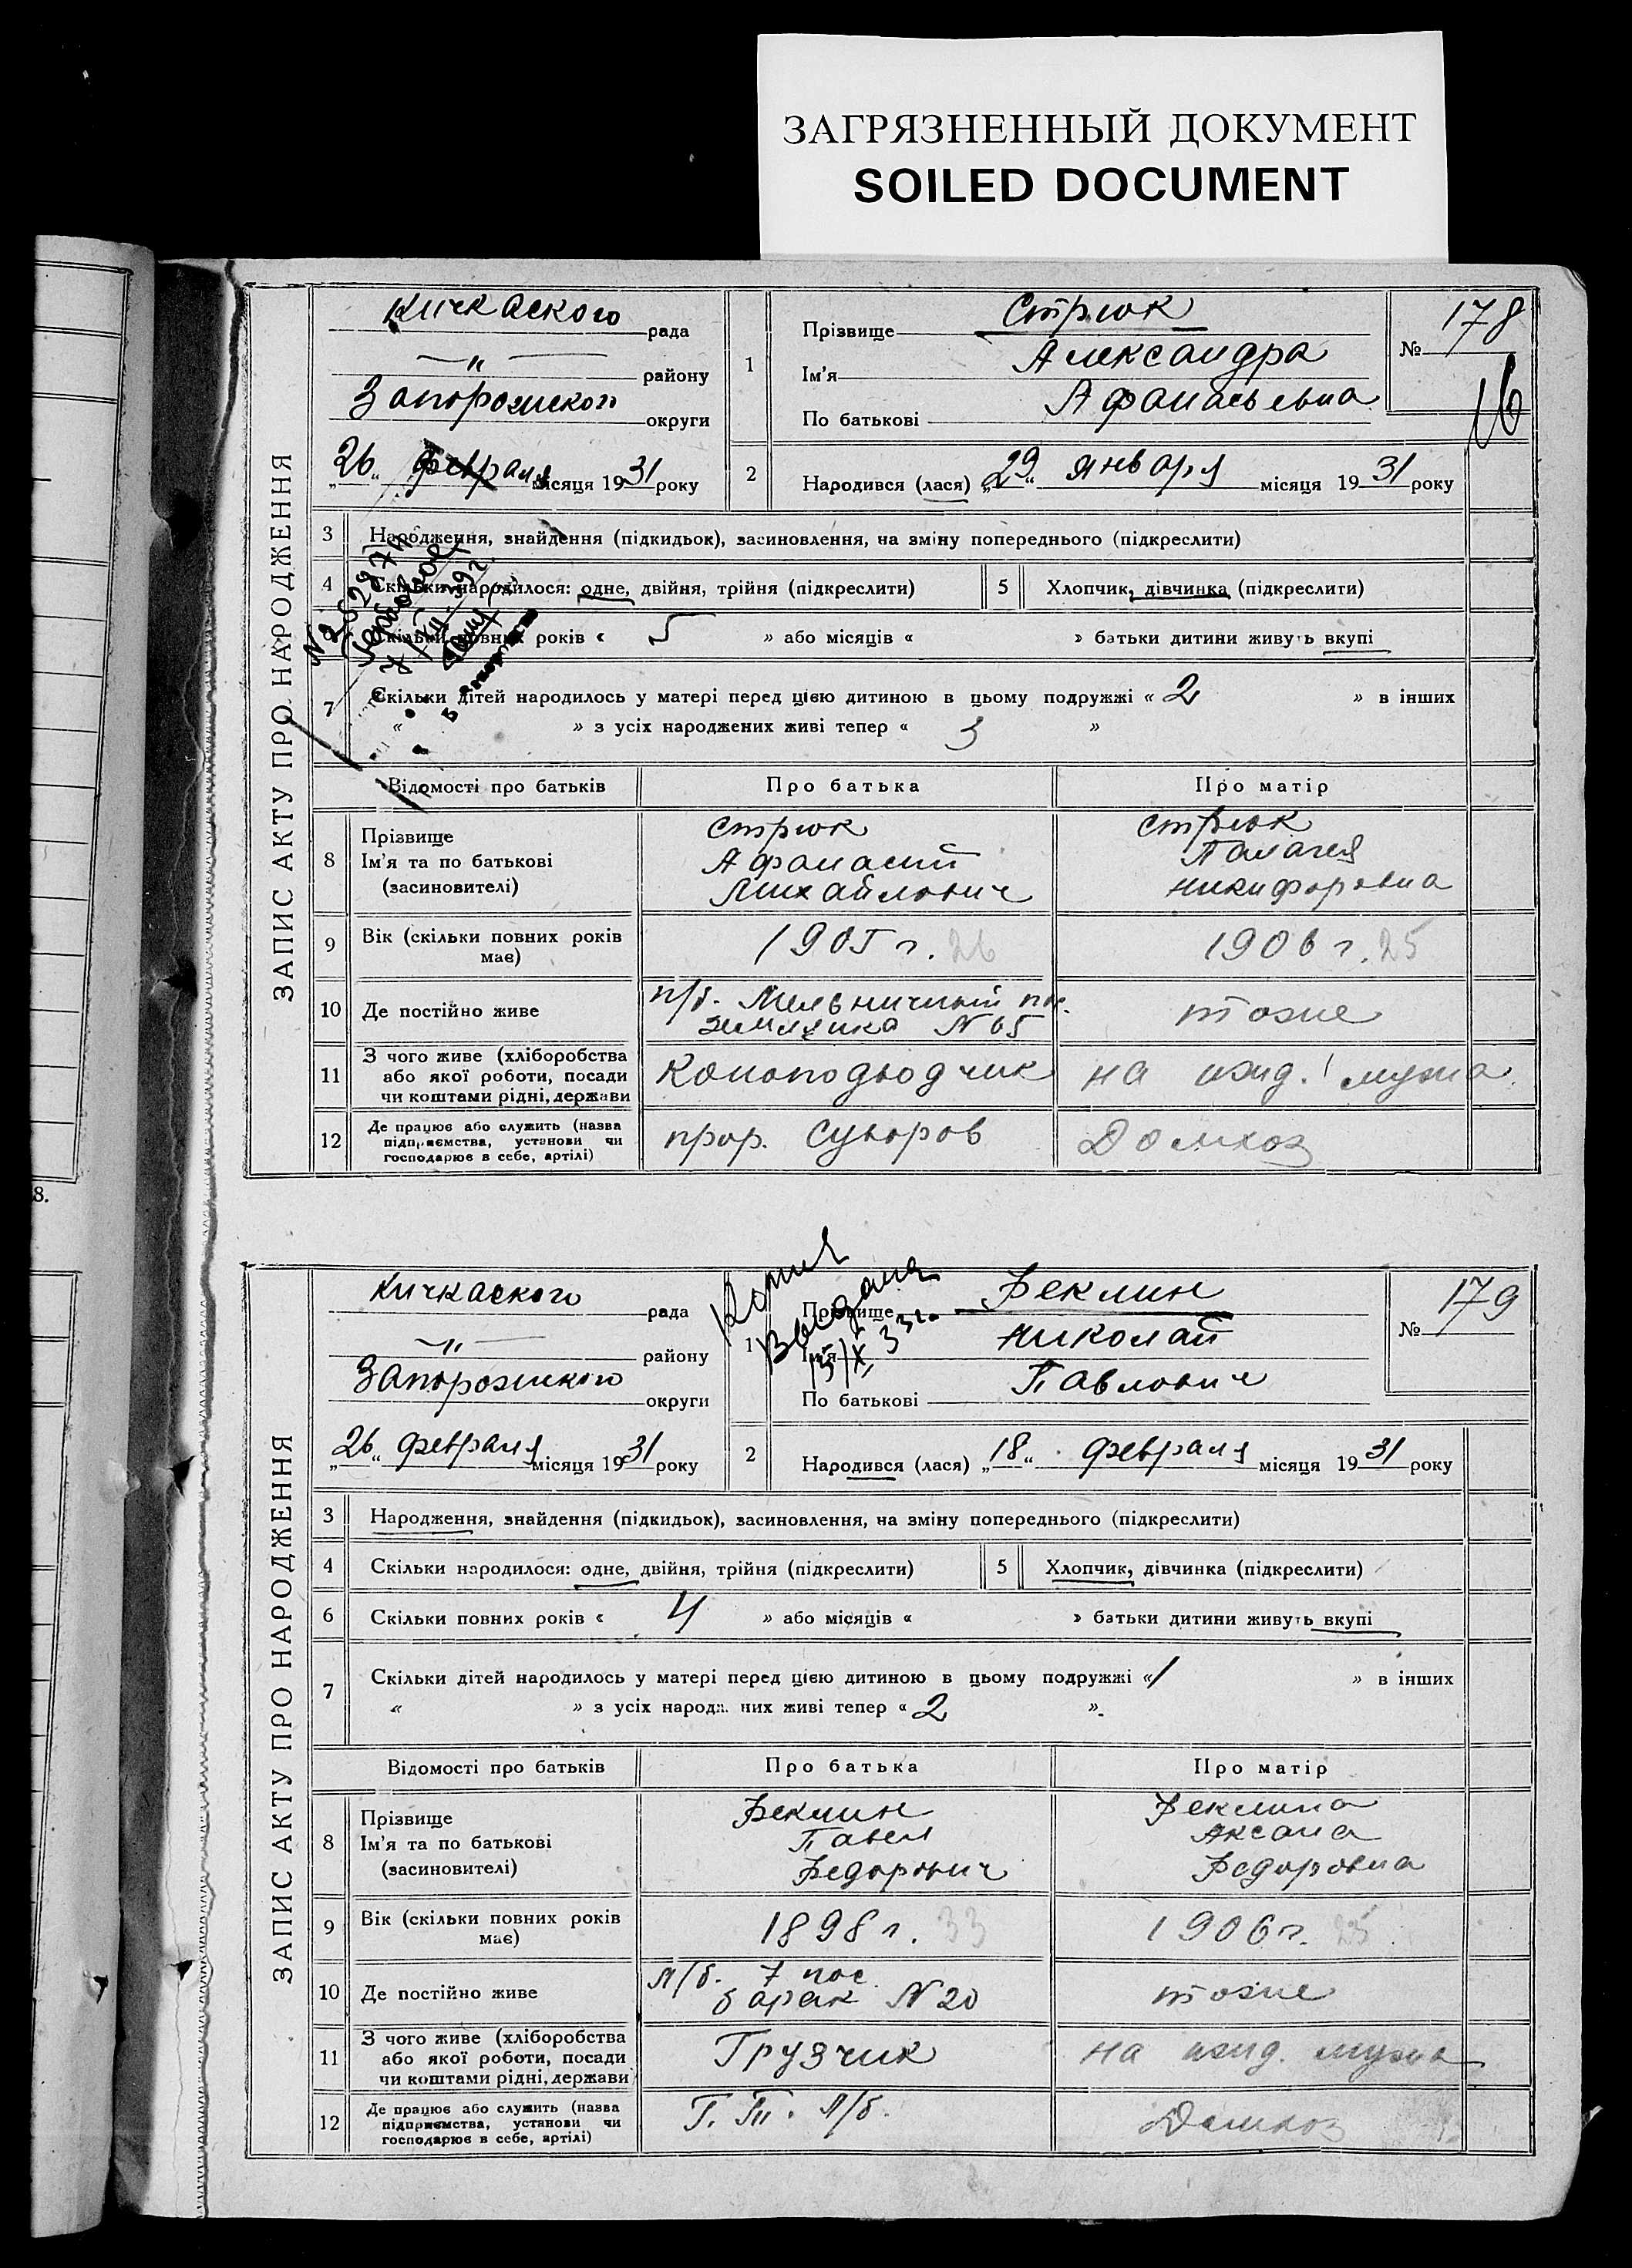 ЗАГРЯЗНЕННЫЙ ДОКУМЕНТ
SOILED DOCUMENT
ЗАПИС АКТУ ПРО НАРОДЖЕННЯ
Кичкаского рада
—„— району
Запорожского округи
„26“ февраля місяця 1931 року
1
Прізвище Стрюк
Ім'я Александра
По батькові Афанасьевна
№ 178
16
2 Народився (лася) „29“ января місяця 1931 року
3 Народження, знайдення (підкидьок), засиновлення, на зміну попереднього (підкреслити)
4 Скільки народилося: одне, двійня, трійня (підкреслити) 5 Хлопчик, дівчинка (підкреслити)
Скільки повних років « 5 » або місяців « » батьки дитини живуть вкупі
7 Скільки дітей народилось у матері перед цією дитиною в цьому подружжі « 2 » в інших
« » з усіх народжених живі тепер « 3 »
Відомості про батьків Про батька Про матір
8 Прізвище Ім'я та по батькові (засиновителі)
Стрюк Афанасий Михайлович
Стрюк Палагея Никифоровна
9 Вік (скільки повних років має) 1905 г. 26 1906 г. 25
10 Де постійно живе п/б. Мельничный пос. землянка N 65 тоже
11 З чого живе (хліборобства або якої роботи, посади чи коштами рідні, держави Коноподводчик на ижд. мужа
12 Де працює або служить (назва підприємства, установи чи господарює в себе, артілі) прор. Суворов Домхоз
8.
ЗАПИС АКТУ ПРО НАРОДЖЕННЯ
Кичкаского рада
—„— району
Запорожского округи
„26“ февраля місяця 1931 року
Копия
Выдана
1
Прізвище Феклин
Ім'я Николай
По батькові Павлович
№ 179
2 Народився (лася) „18“ февраля місяця 1931 року
3 Народження, знайдення (підкидьок), засиновлення, на зміну попереднього (підкреслити)
4 Скільки народилося: одне, двійня, трійня (підкреслити) 5 Хлопчик, дівчинка (підкреслити)
6 Скільки повних років « 4 » або місяців « » батьки дитини живуть вкупі
7 Скільки дітей народилось у матері перед цією дитиною в цьому подружжі « 1 » в інших
« » з усіх народж них живі тепер « 2 ».
Відомості про батьків Про батька Про матір
8 Прізвище Ім'я та по батькові (засиновителі)
Феклин Павел Федорович
Феклина Аксана Федоровна
9 Вік (скільки повних років має) 1898 г. 33 1906 г. 25
10 Де постійно живе л/б. 7 пос. барак N 20 тоже
11 З чого живе (хліборобства або якої роботи, посади чи коштами рідні, держави Грузчик на ижд. мужа
12 Де працює або служить (назва підприємства, установи чи господарює в себе, артілі) Г. П. л/б. Домхоз